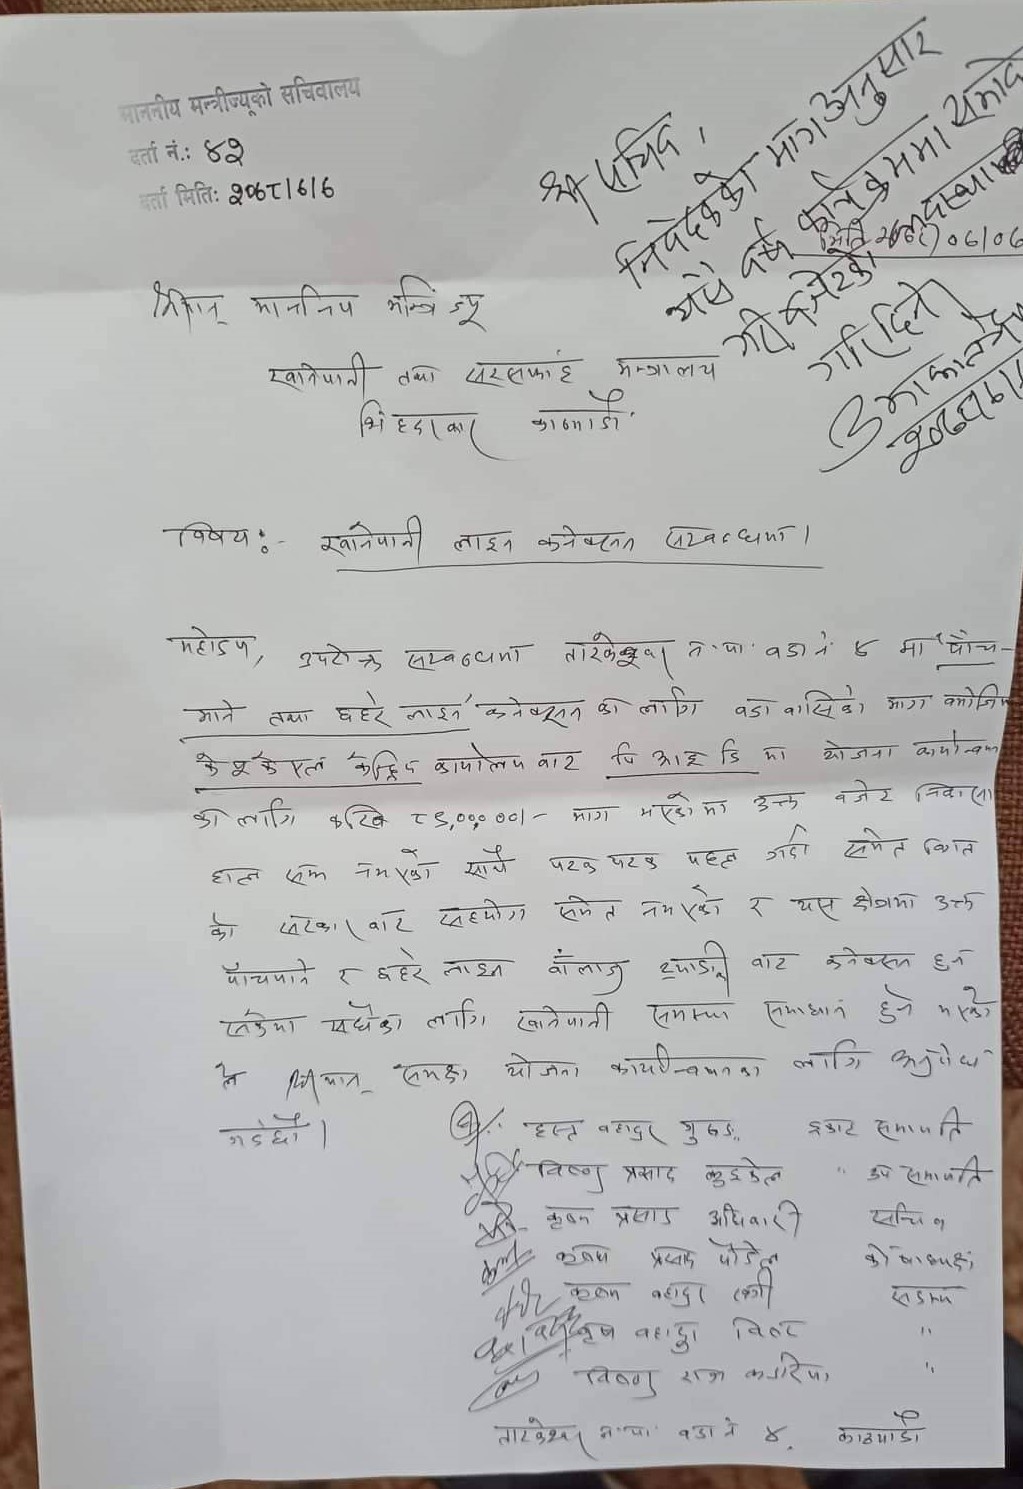 माननीय मन्त्रीज्यूको सचिवालय
दर्ता नं.: ४२
दर्ता मिति: २०७८।6।6
श्री सचिव,
निवेदकको माग अनुसार
यसै वर्ष कार्यक्रममा समावेश
गरी बजेटको व्यवस्था
गरिदिने
मिति २०७८।06।06
श्रीमान् माननिय मन्त्रि ज्यू
खानेपानी तथा सरसफाई मन्त्रालय
सिंहदरबार काठमाडौं
विषय:- खानेपानी लाइन कनेक्सन सम्बन्धमा।
महोदय, उपरोक्त सम्बन्धमा तारकेश्वर न.पा. वडा नं ४ मा पाँच-
माने तथा छहरे लाइन कनेक्सन को लागि वडा वासिको माग
के यू के एल केन्द्रिय कार्यालय बाट पि आइ डि मा योजना कार्यान्वयन
को लागि करिब माग भएकोमा उक्त बजेट निकासा
हाल सम्म नभएको साथै पटक पटक पहल गर्दा समेत विगत
को सरकार बाट सहयोग समेत नभएको र यस क्षेत्रमा उक्त
पाँचमाने र छहरे लाइन बाट कनेक्सन हुन
सकेमा सधैंको लागि खानेपानी समस्या समाधान हुने भएको
ले श्रीमान् समक्ष योजना कार्यान्वयनका लागि अनुरोध
गर्दछौं।
हस्त बहादुर गुरुङ इकाई सभापति
विष्णु प्रसाद कुइकेल " उप सभापति
कृष्ण प्रसाद अधिकारी सचिव
कृष्ण प्रसाद पौडेल कोषाध्यक्ष
कृष्ण बहादुर सदस्य
बहादुर "
विष्णु राज "
तारकेश्वर न.पा. वडा नं ४, काठमाडौं